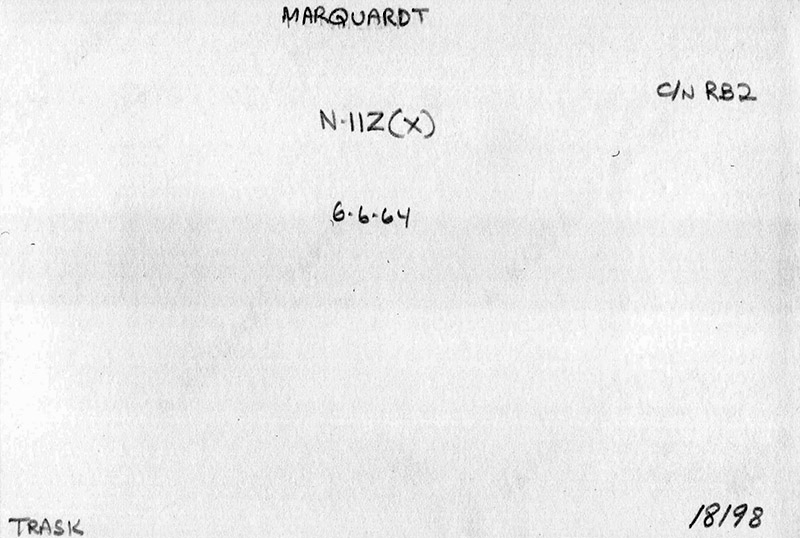 MARQUARDT
C/N RB2
N-11Z(X)
6-6-64
TRASK
18198